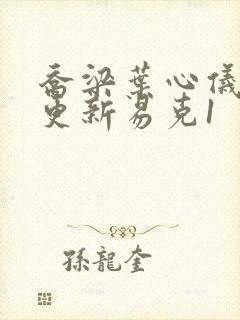 喬梁葉心儀
更新易克1
孫龍奎